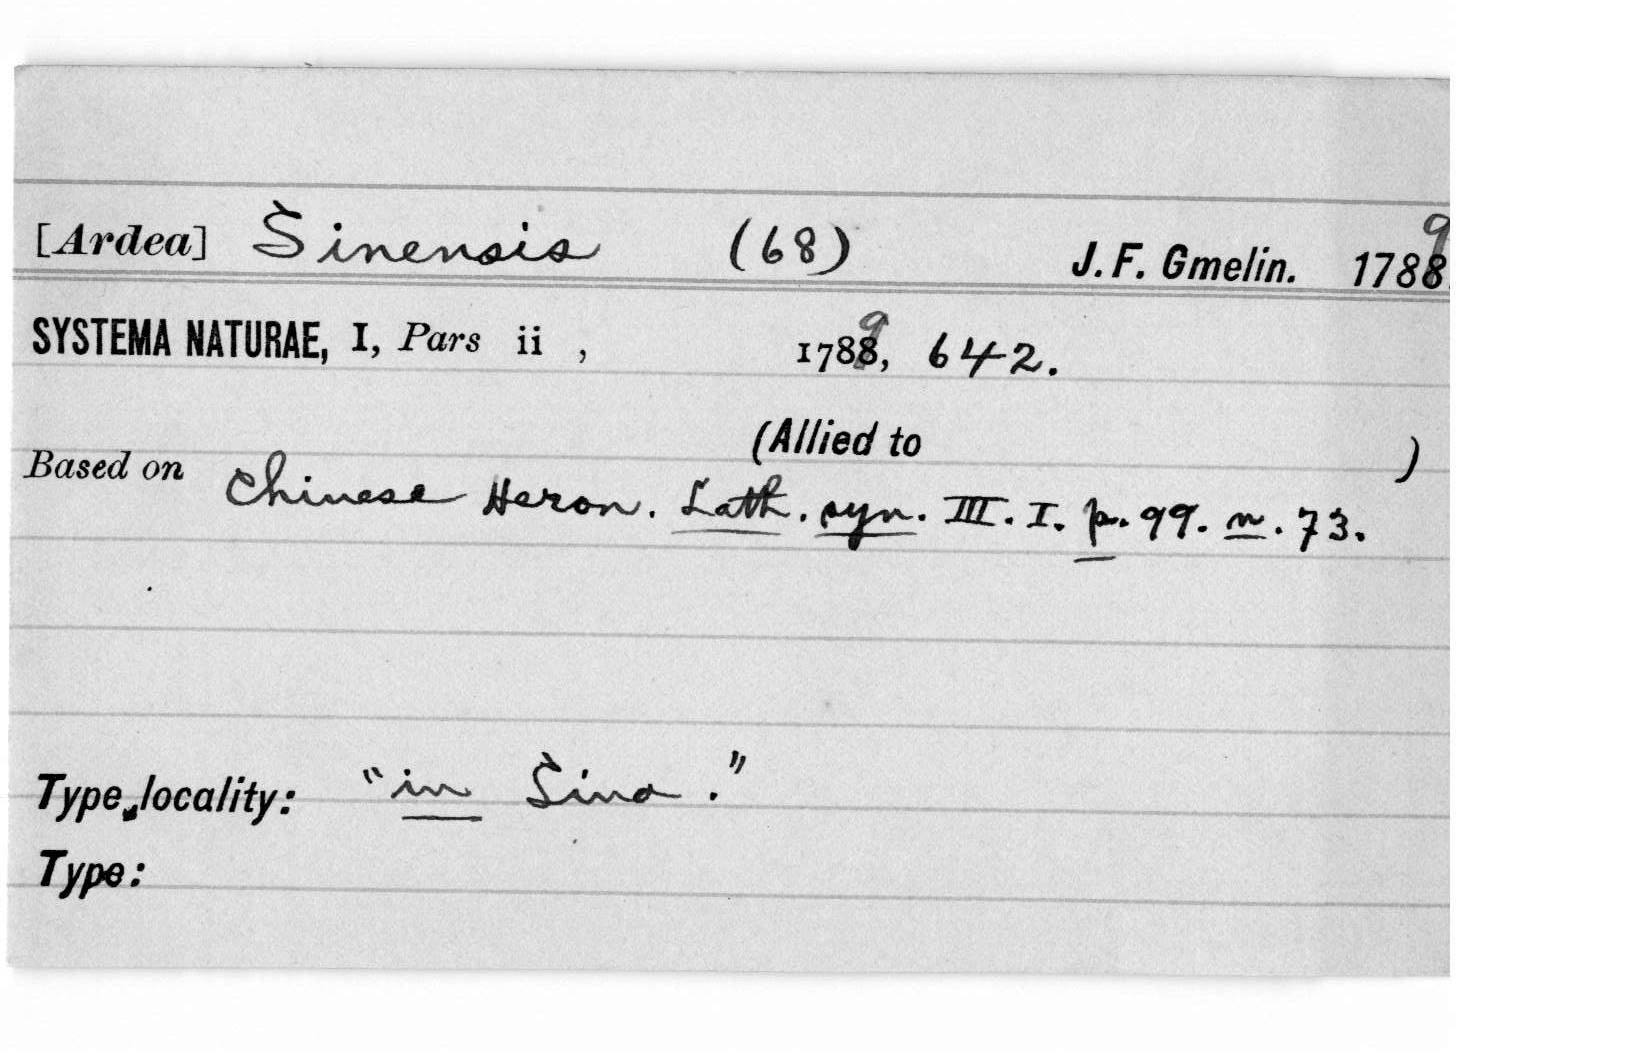 [Ardea] Sinensis (68) J. F. Gmelin. 1789
SYSTEMA NATURAE, I, Pars ii , 1789, 642.
(Allied to )
Based on Chinese Heron. Lath. syn. III. I. p. 99. n. 73.
Type locality: "in Sina."
Type: